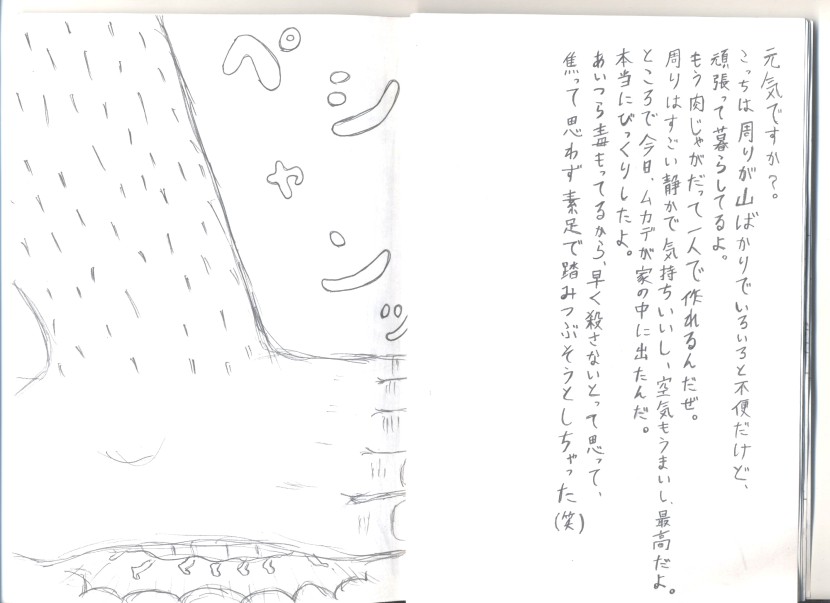 元気ですか？
こっちは周りが山ばかりでいろいろと不便だけど、
頑張って暮らしてるよ。
もう肉じゃがだって一人で作れるんだぜ。
周りはすごい静かで気持ちいいし、空気もうまいし、最高だよ。
ところで今日、ムカデが家の中に出たんだ。
本当にびっくりしたよ。
あいつら毒もってるから、早く殺さないとって思って、
焦って思わず素足で踏みつぶそうとしちゃった(笑)
ペシャン